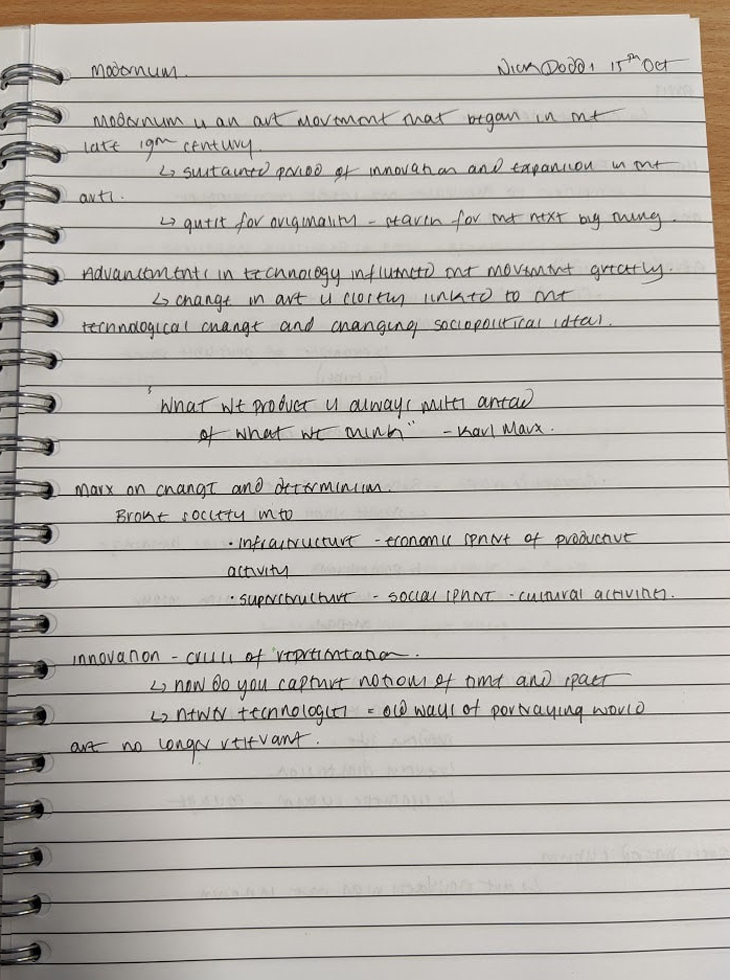 Modernism. Nick Dodds 15th Oct
Modernism is an art movement that began in the
late 19th century.
↳ sustained period of innovation and expansion in the
arts.
↳ quest for originality - search for the next big thing.
Advancements in technology influenced the movement greatly.
↳ change in art is closely linked to the
technological change and changing sociopolitical ideas.
'What we produce is always miles ahead
of what we think" - Karl Marx.
Marx on change and determinism.
Broke society into
• infrastructure - economic sphere of productive
activity
• superstructure - social sphere - cultural activities.
innovation - crisis of representation.
↳ how do you capture notions of time and space
↳ newer technologies = old ways of portraying world
are no longer relevant.